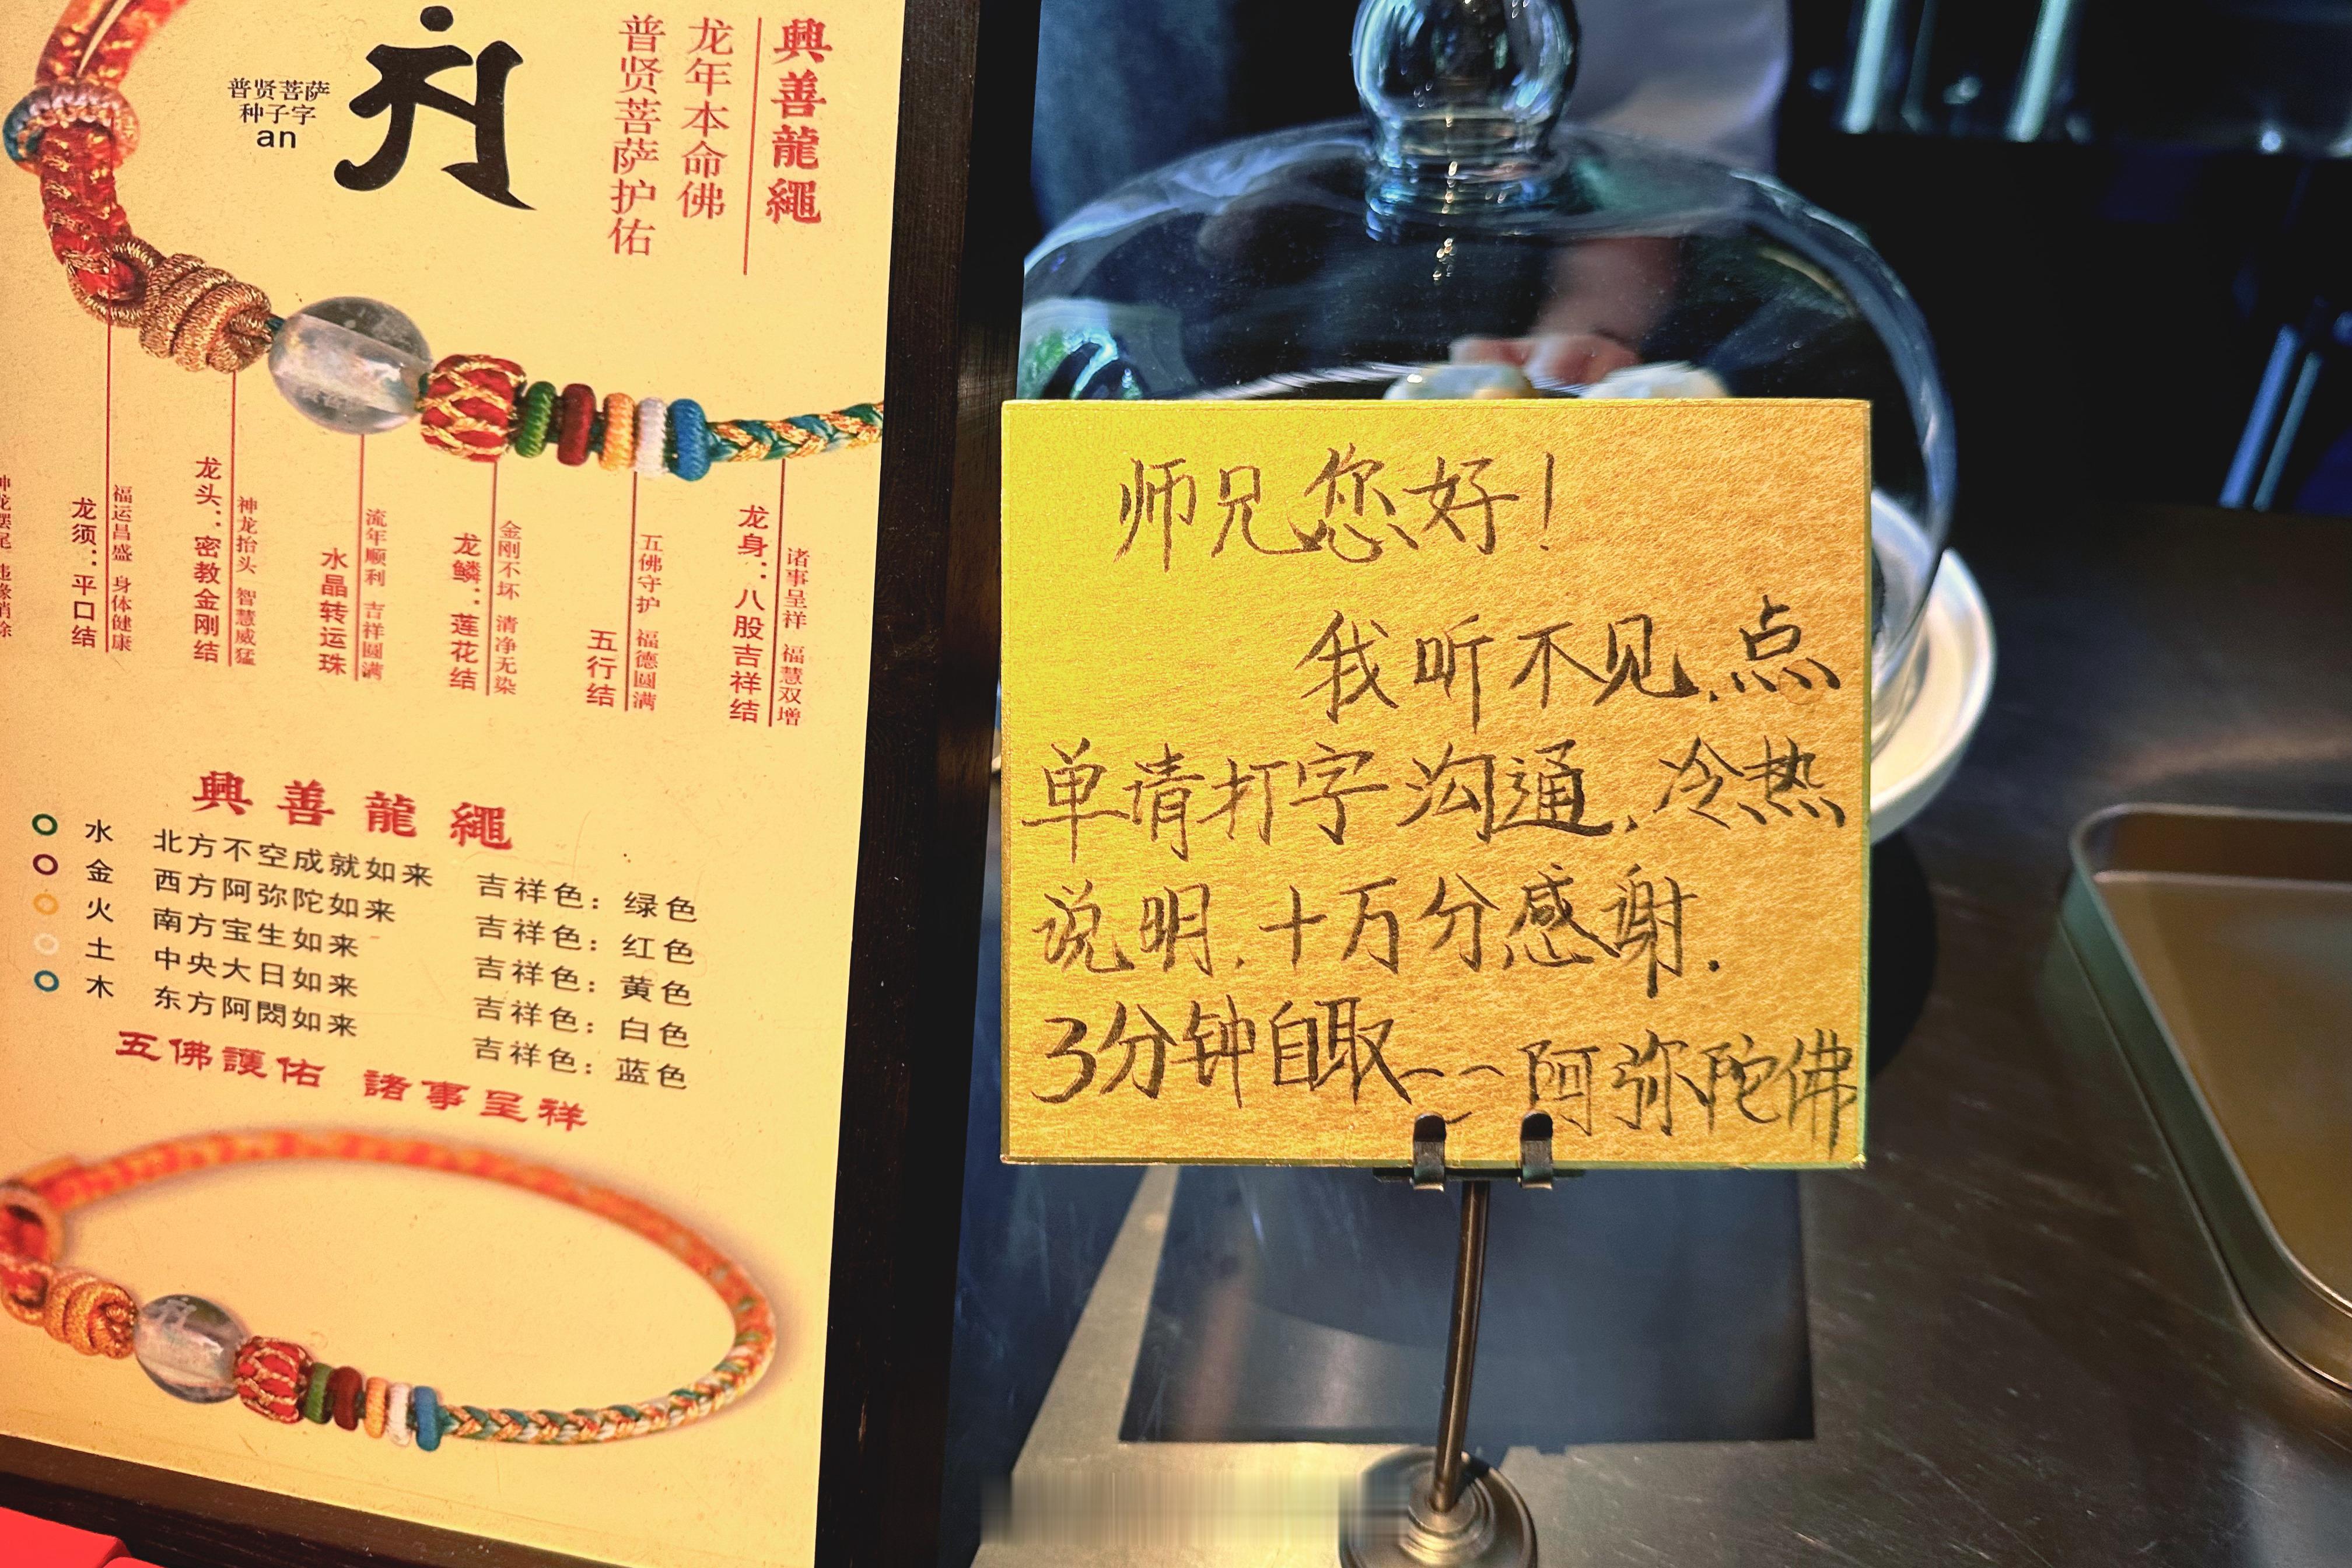 興善龍繩
龙年本命佛
普贤菩萨护佑
普贤菩萨
种子字
an
福运昌盛 身体健康
龙须：平口结
神龙抬头 智慧威猛
龙头：密教金刚结
流年顺利 吉祥圆满
水晶转运珠
金刚不坏 清净无染
龙鳞：莲花结
五佛守护 福德圆满
五行结
诸事呈祥 福慧双增
龙身：八股吉祥结
興善龍繩
水 北方不空成就如来 吉祥色：绿色
金 西方阿弥陀如来 吉祥色：红色
火 南方宝生如来 吉祥色：黄色
土 中央大日如来 吉祥色：白色
木 东方阿閦如来 吉祥色：蓝色
五佛護佑 諸事呈祥
师兄您好！
我听不见，点
单请打字沟通，冷热
说明，十万分感谢.
3分钟自取~~阿弥陀佛